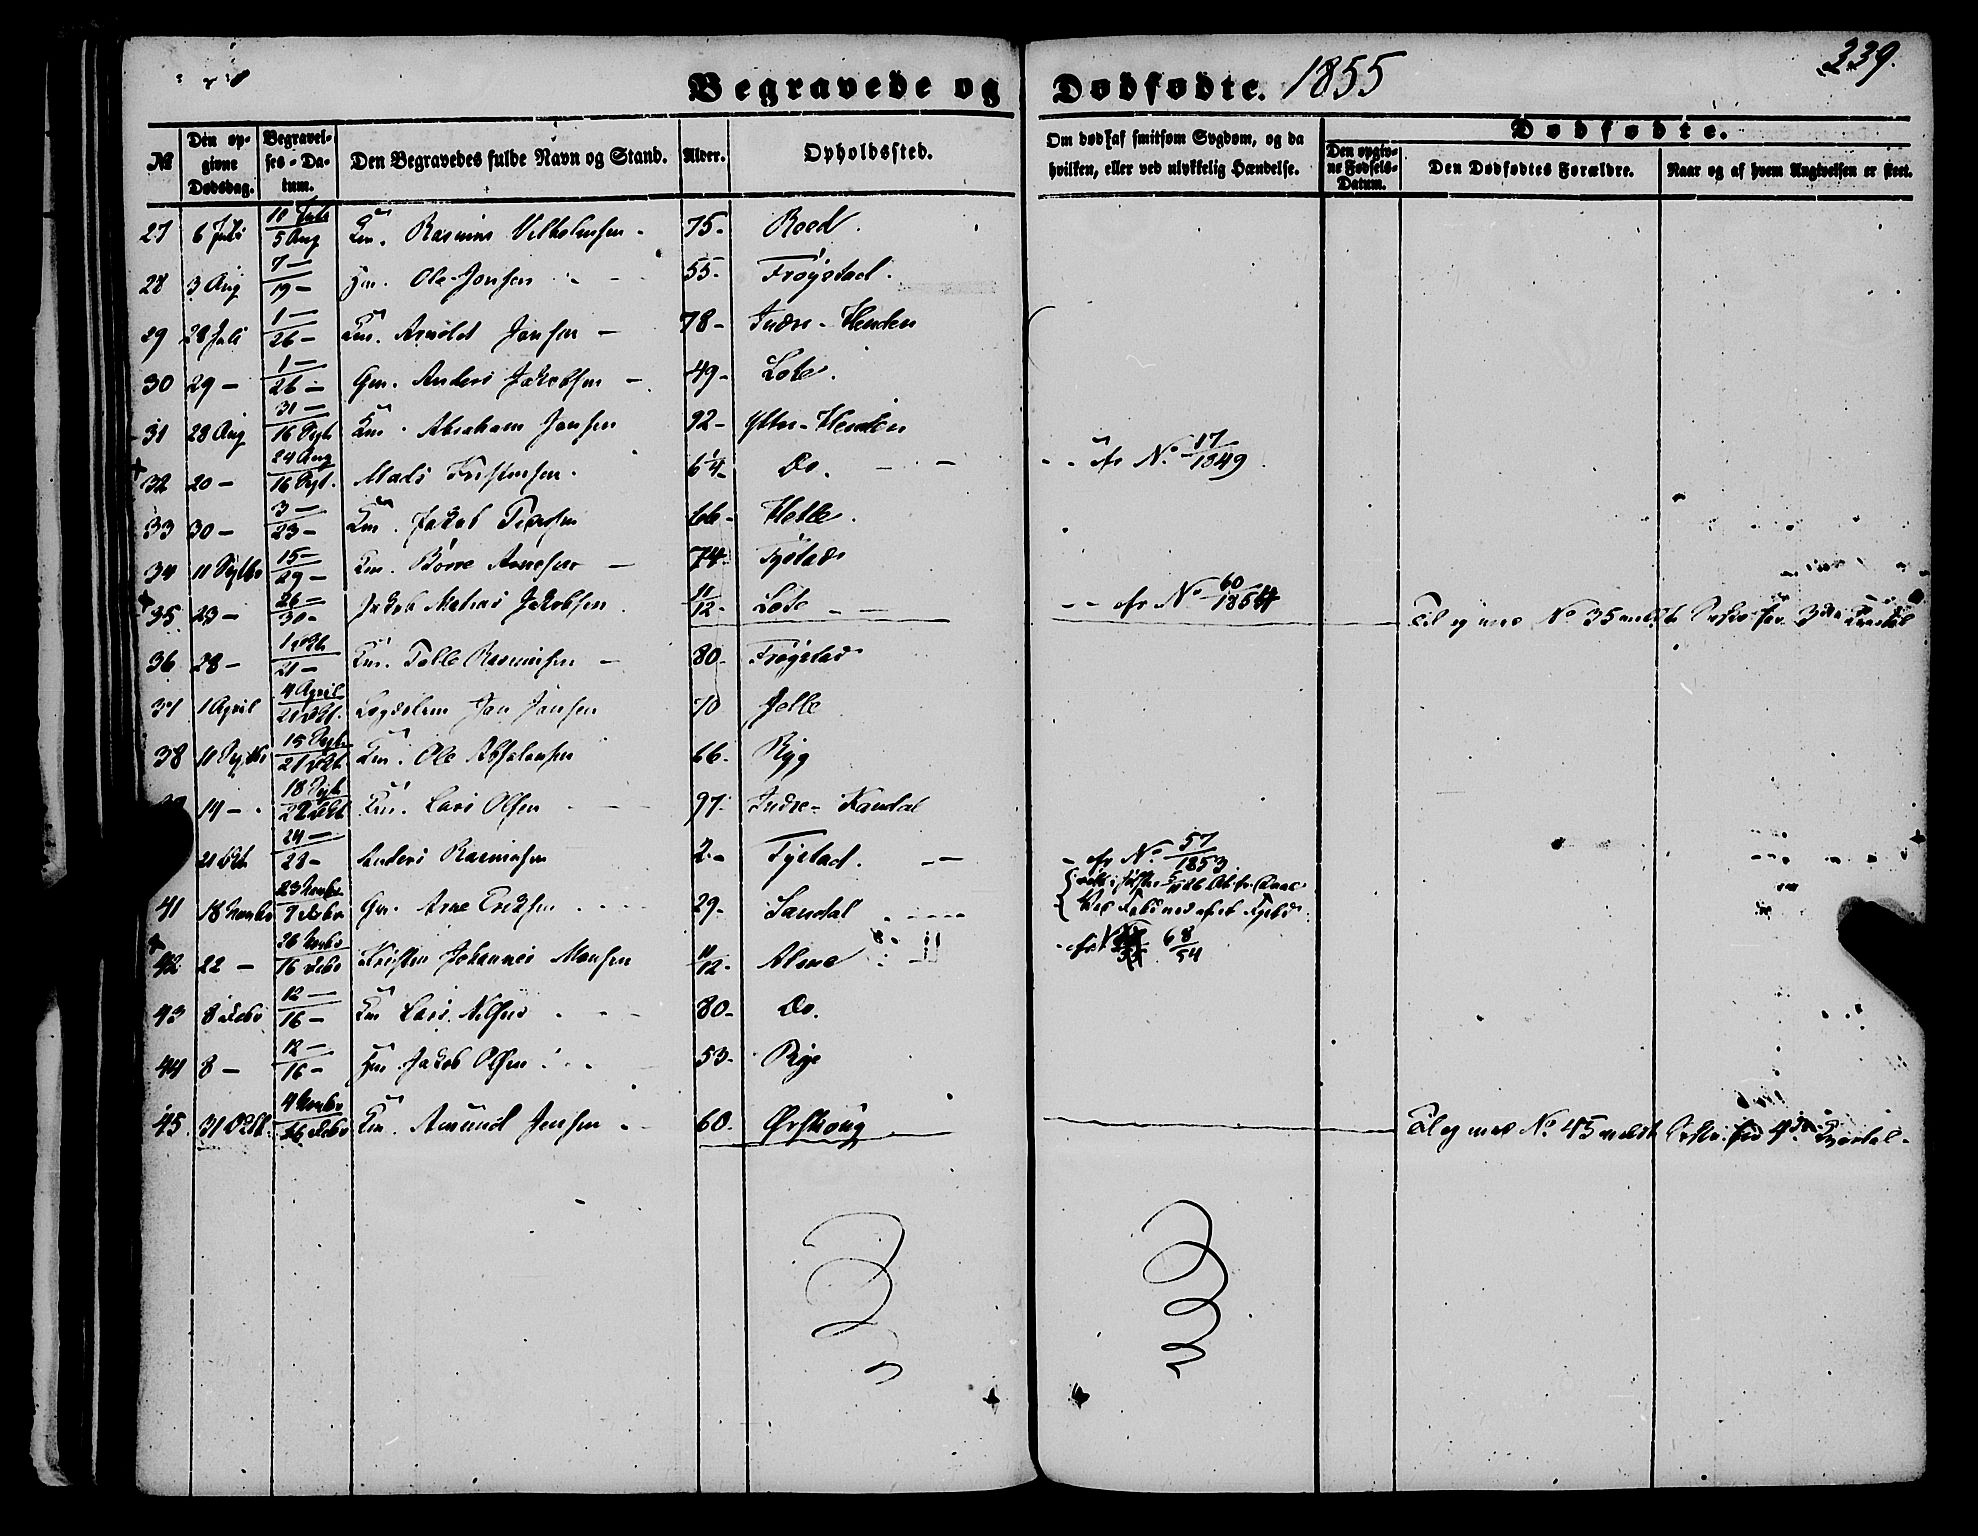 339.
Begravede og Dødfødte. 1855
№ | Den opgivne Dødsdag. | Begravelses-Datum. | Den Begravedes fulde Navn og Stand. | Alder. | Opholdssted. | Om død af smitsom Sygdom, og da hvilken, eller ved ulykkelig Hændelse. | Dødfødte. | Den opgivne Fødsels-Datum. | Den Dødfødtes Forældre. | Naar og af hvem Angivelsen er skeet.
27 6 Juli 10 Juli / 5 Aug Km. Rasmus Vilhelmsen - 75- Roed.
28 3 Aug 7 — / 19 - Hm. Ole Jonsen 55- Frøystad.
29 28 Juli 1 — / 26 - Km. Arnoldt Jonsen - 78- Indre-Henden
30 29 - 1 — / 26 - Gm. Anders Jakobsen - 49- Lote.
31 28 Aug 31 — / 16 Sept Km. Abraham Jonsen 92- Ytter-Henden
32 20 - 24 Aug / 16 Sept. Mads Kristensen. 6 1/4- Do. - - cfr No. 17/1849
33 30 - 3 — / 23 - Km. Jakob 66- Helle.
34 11 Septbr 15 — / 29 - Km. Børre Arnesen - 74. Tystad
35 23 - 26 — / 30 - Jakob Matias Jakobsen 11/12- Lote - - cfr No 60/1854 Til og med No 35 meldt for 3die Kvartal
36 28 - 1 Oktb / 21 - Km. Tolle Rasmusen - 80- Frøystad
37 1 April 4 April / 21 Okt. Lægdslem Jon Jonsen 70 Jelle
38 11 Septbr 15 Septb / 21 Oktb Km. Ole Absalonsen 66- Ryg
14 - 18 Septb / 22 Oktb Km. Lars Olsen 97. Indre-Kandal
21 Okt 24 — / 28 - Anders Rasmusen 2- Tystad. - cfr No. 57/1853
41 18 Novbr 23 Novbr / 9 Debr Gm. Arne Eriksen 29- Sandal
42 22 - 26 Novbr / 16 Debr Kristen Johannes Monsen 11/12- Alme - cfr 68/54
43 8 Debr 12 — / 16 - Km Lars Nilsen 80- Do.
44 8 - 12 — / 16 - Hm. Jakob Olsen 53- Ryg
45 31 Oktb. 4 Novbr / 16 Debr Km. Amund Jonsen 60. Ørskoug Til og med No. 45 meldt for 4de Kvartal-